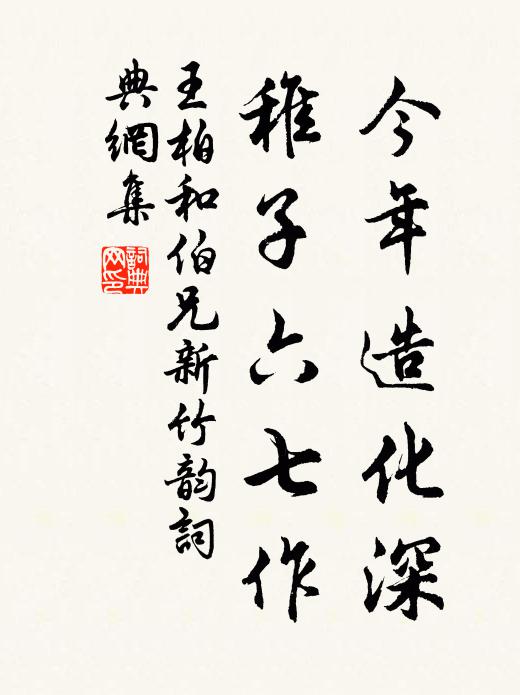 今年造化深
稚子六七作
王柏和伯兄新竹韵詞
典網集
詞典
网印